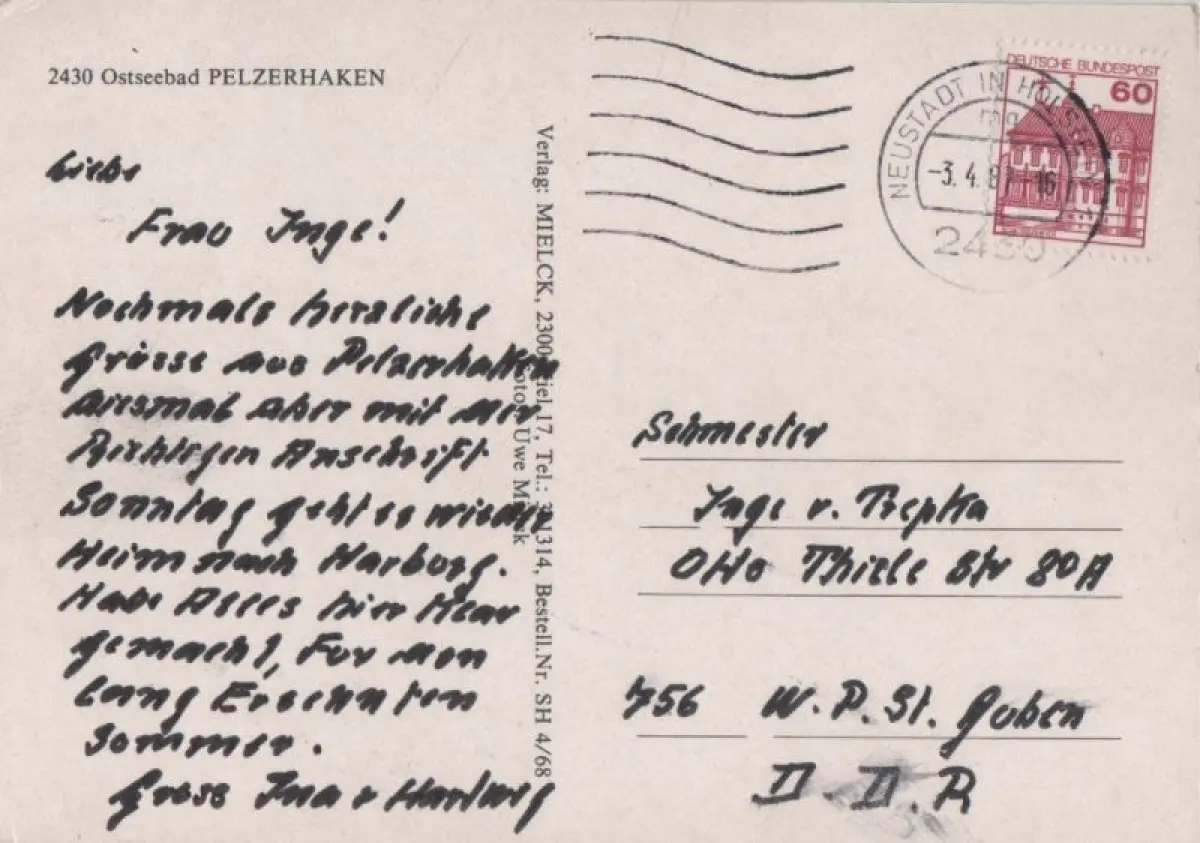 2430 Ostseebad PELZERHAKEN
Liebe
Frau Inge!
Nochmals herzliche
Grüsse aus Pelzerhaken
diesmal aber mit der
Richtigen Anschrift
Sonntag geht es wieder
Heim nach Harburg.
Habe Alles hier Klar
gemacht, Für den
lang Ersehnten
Sommer.
Gruss Ina + Hartwig
Verlag: MIELCK, 2300 Kiel 17, Tel.: 314, Bestell.Nr. SH 4/68
Foto: Uwe Mielck
NEUSTADT IN HOLSTEIN
-3.4.8 -16
2430
DEUTSCHE BUNDESPOST
60
Schwester
Inge v. Trepka
Otto Thiele Str 80A
756 W. P. St. Guben
D. D. R